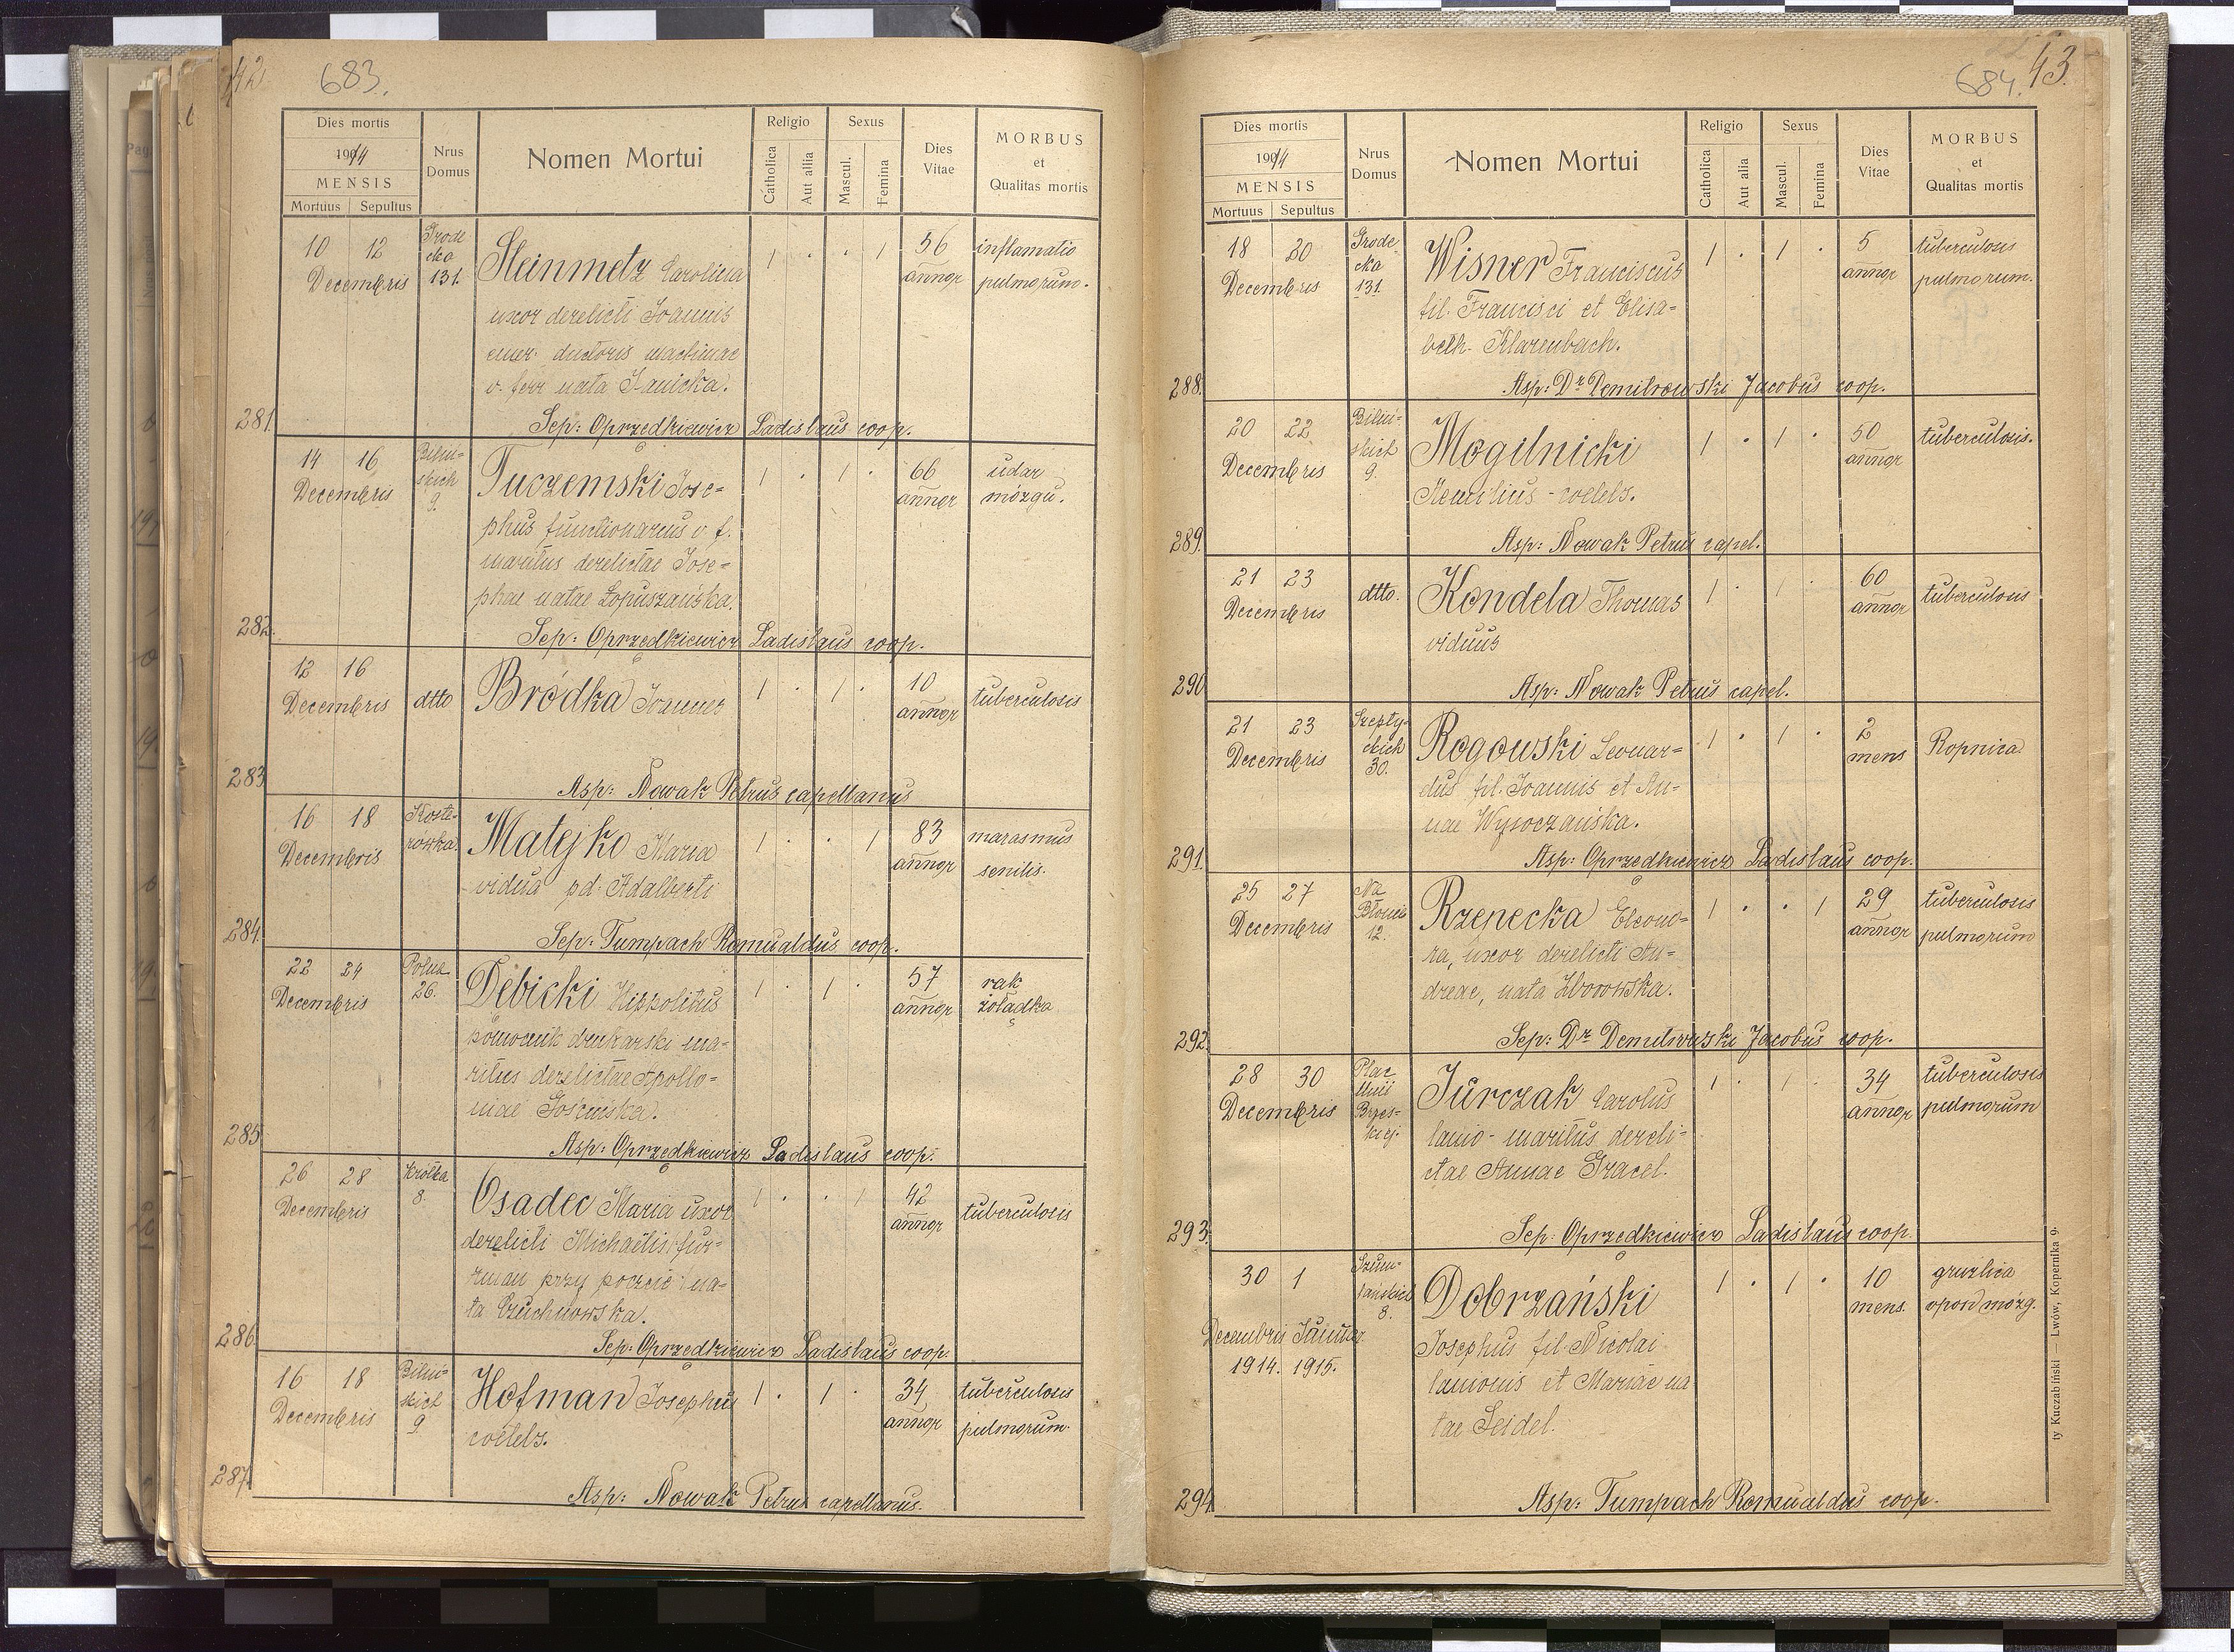 42
683.
Dies mortis
1914
MENSIS
Mortuus Sepultus
Nrus Domus
Nomen Mortui
Religio
Catholica
Aut alia
Sexus
Mascul.
Femina
Dies Vitae
MORBUS
et
Qualitas mortis
10 12
Decembris
Grode
cka
131.
Steinmetz Carolina
uxor derelicti Joannis
emer. ductoris machinae
v. ferr nata Janicka.
1 . . 1
56
annor
inflamatio
pulmorum.
281.
Sep: Oprzędkiewicz Ladislaus coop.
14 16
Decembris
Biliń=
skich
9.
Tuczemski Jose=
phus functionarius v. f.
maritus derelictae Jose=
phae natae Łopuszańska.
1 . 1 .
66
annor
udar
mózgu.
282.
Sep: Oprzędkiewicz Ladislaus coop.
12 16
Decembris
dtto
Bródka Joannes
1 . 1 .
10
annor
tuberculosis
283
Asp: Nowak Petrus capellanus
16 18
Decembris
Koste=
rówka.
Matejko Maria
vidua pd. Adalberti
1 . . 1
83
annor
marasmus
senilis.
284.
Sep: Tumpach Romualdus coop.
22 24
Decembris
Polna
26.
Dębicki Hippolitus
pomocnik drukarski ma=
ritus derelictae Apollo=
niae Gościńska.
1 . 1 .
57
annor
rak
żołądka
285
Asp: Oprzędkiewicz Ladislaus coop.
26 28
Decembris
Krótka
8.
Osadec Maria uxor
derelicti Michaëlis fur=
man przy poczcie na=
ta Czuchnowska.
1 . . 1
42
annor
tuberculosis
286
Sep: Oprzędkiewicz Ladislaus coop.
16 18
Decembris
Biliń=
skich
9
Hofman Josephus
coelebs.
1 . 1 .
34
annor
tuberculosis
pulmorum.
287.
Asp: Nowak Petrus capellanus.
684. 43.
Dies mortis
1914
MENSIS
Mortuus Sepultus
Nrus Domus
Nomen Mortui
Religio
Catholica
Aut alia
Sexus
Mascul.
Femina
Dies Vitae
MORBUS
et
Qualitas mortis
18 20
Decembris
Grode
cka
131.
Wisner Franciscus
fil. Francisci et Elisa=
beth. Klarenbach.
1 . 1 .
5
annor
tuberculosis
pulmorum.
288.
Asp: Dr Demitrowski Jacobus coop.
20 22
Decembris
Biliń=
skich
9.
Mogilnicki
Aemilius - coelebs.
1 . 1 .
50
annor
tuberculosis.
289.
Asp: Nowak Petrus capel.
21 23
Decembris
dtto.
Kondela Thomas
viduus
1 . 1 .
60
annor
tuberculosis
290
Asp: Nowak Petrus capel.
21 23
Decembris
Szepty-
ckich
30.
Rogowski Leonar=
dus fil. Joannis et An=
nae Wysoczańska.
1 . 1 .
2
mens
Ropnica
291.
Asp: Oprzędkiewicz Ladislaus coop.
25 27
Decembris
Na
Błonie
12.
Rzepecka Eleono=
ra, uxor derelicti An=
dreae, nata Zborowska.
1 . . 1
29
annor
tuberculosis
pulmorum
292.
Sep: Dr Demitrowski Jacobus coop.
28 30
Decembris
Plac
Unii
Brzes=
kiej.
Jurczak Carolus
lanio - maritus dereli=
ctae Annae Gracel.
1 . 1 .
34
annor
tuberculosis
pulmorum
293.
Sep: Oprzędkiewicz Ladislaus coop.
30 1
Decembris Januar.
1914. 1915.
Szum=
lańskich
8.
Dobrzański
Josephus fil. Nicolai
lanionis et Mariae na
tae Seidel.
1 . 1 .
10
mens.
gruźlica
opon mózg.
294
Asp: Tumpach Romualdus coop.
ty Kuczabiński — Lwów, Kopernika 9.